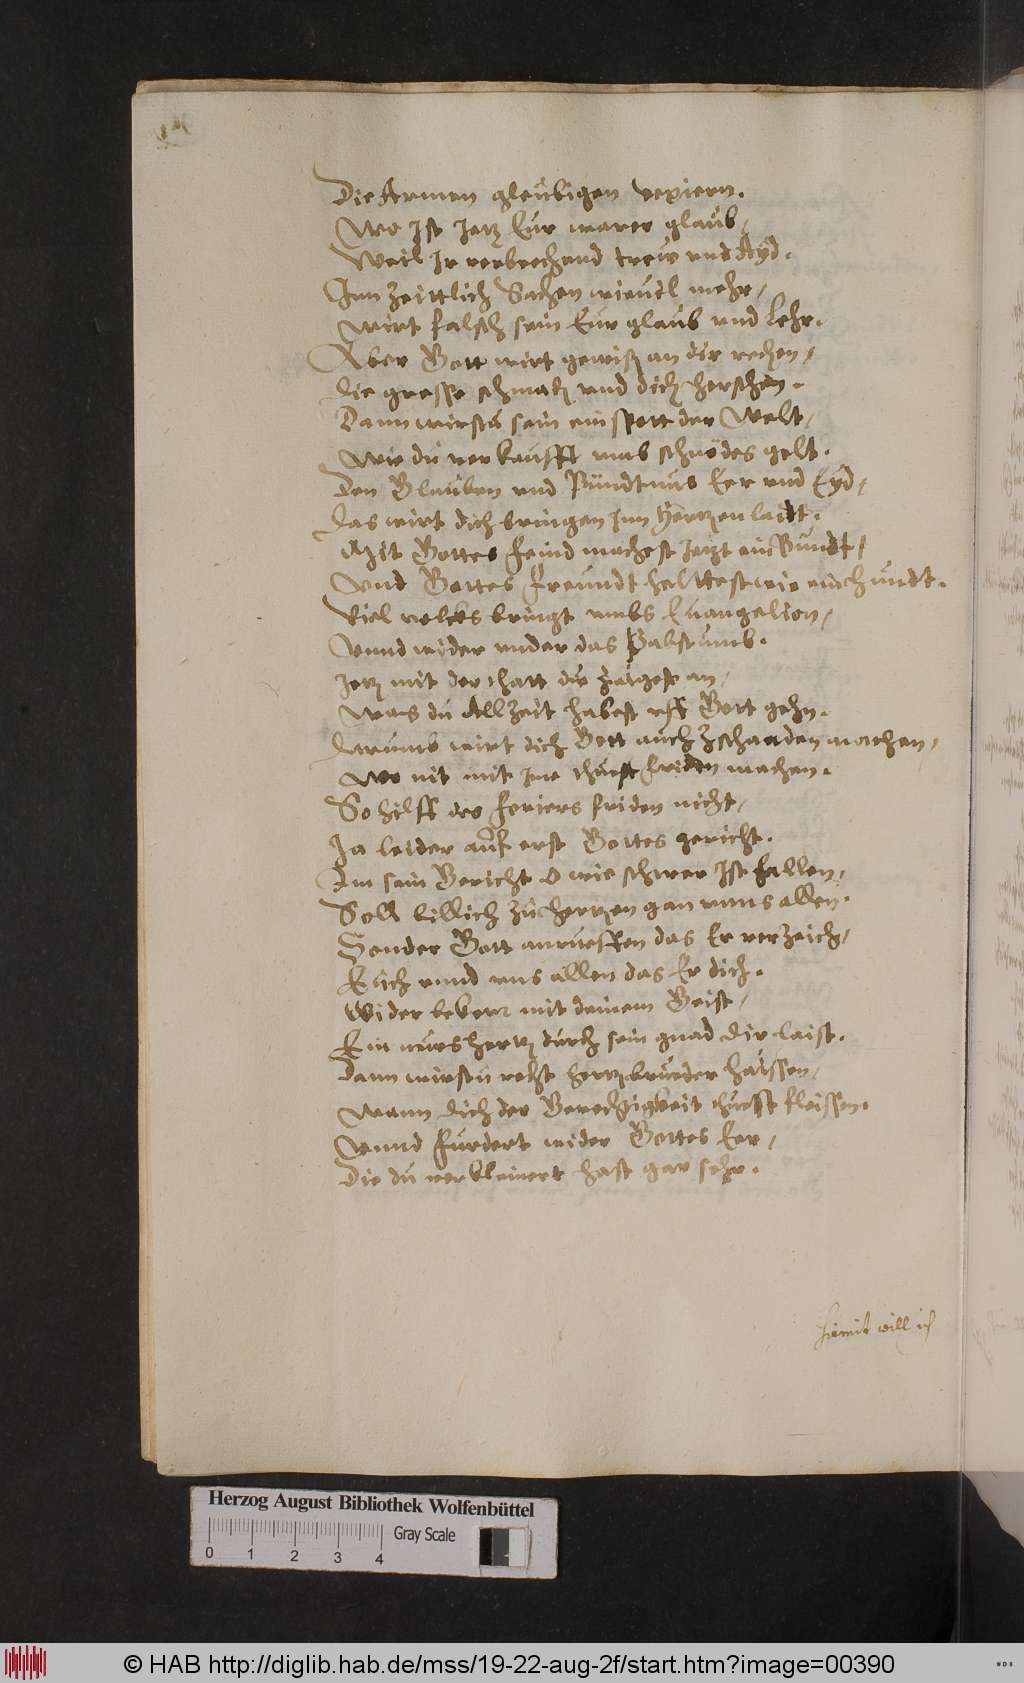 Die Armen gleubigen vexiern.
Wo Ist Jetz Eur warer glaub,
Weil Ir verbrechend treuw und Ayd.
Inn Zeittlich Sachen wievil mehr,
Wirt falsch sein Eur glaub und Lehr.
Aber Gott wirt gewiß an dir rechen,
die grosse schmach und dich
Dann wirstu sein ein spott der Welt,
Wie du verkaufft umb schnödes gelt.
Den Glauben und Pündtnus Eer und Eyd,
das wirt dich bringen Inn Hertzen laidt.
Mit Gottes feind machest Jetzt ein Pundt,
Und Gottes freundt halttest wie einch hundt.
Viel volcks bringt umbs Euangelion,
Unnd wider under das Pabstumb.
Jetz mit der thatt du zaigest an,
Was du Allzeit habest uff Gott gehn.
darumb wirt dich Gott auch Zschanden machen,
Wo nit mit Ime thuest friden machen.
So hilfft des friden nicht,
Ja leider auf erst Gottes gericht.
Im sein Gericht o wie schwer Ist fallen,
Soll billich zu hertzen gan unns allen.
Sonder Gott anrueffen das Er verzeich,
Euch unnd uns allen das Er dich.
Wider beker mit deinem Geist,
Ein neuws hertz durch sein gnad dir laist.
Dann wirstu recht hertzbrueder haissen,
Wann dich der Gerechtigkeit thuest fleissen.
Unnd furdert wider Gottes Eer,
Die du verkleinert hast gar sehr.
Hiemit will ich
Herzog August Bibliothek Wolfenbüttel
Gray Scale
0 1 2 3 4
© HAB http://diglib.hab.de/mss/19-22-aug-2f/start.htm?image=00390